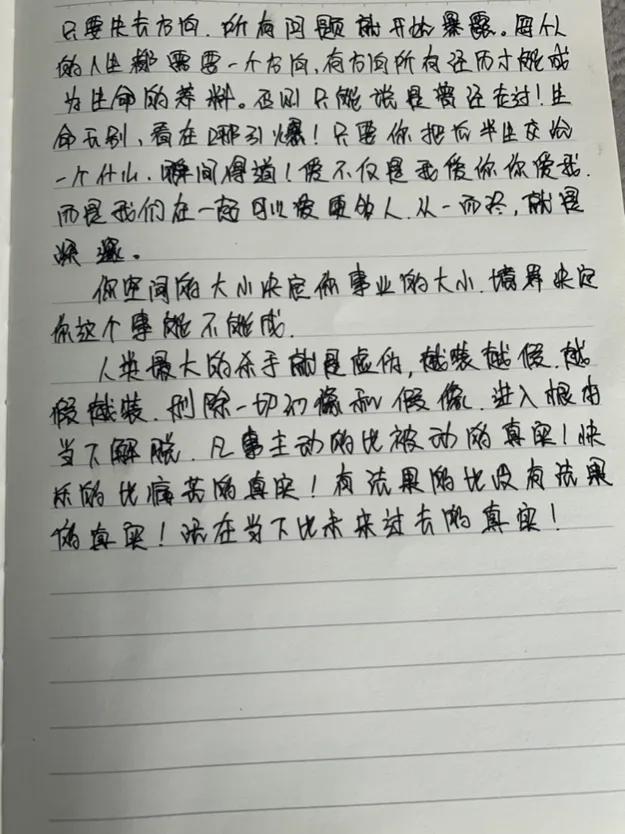 只要失去方向.所有问题就开始暴露。每个人
的人生都需要一个方向,有方向所有经历才能成
为生命的养料。否则只能说是曾经在过!生
命无别,看在哪引爆!只要你把后半生交给
一个什么.瞬间得道!爱不仅是我爱你你爱我.
而是我们在一起可以爱更多人.从一而终,就是
浪漫。
你空间的大小决定你事业的大小.境界决定
你这个事能不能成.
人类最大的杀手就是虚伪,越装越假.越
假越装.删除一切幻像和假像.进入根由
当下解脱.凡事主动的比被动的真实!快
乐的比痛苦的真实!有结果的比没有结果
的真实!活在当下比未来过去的真实!